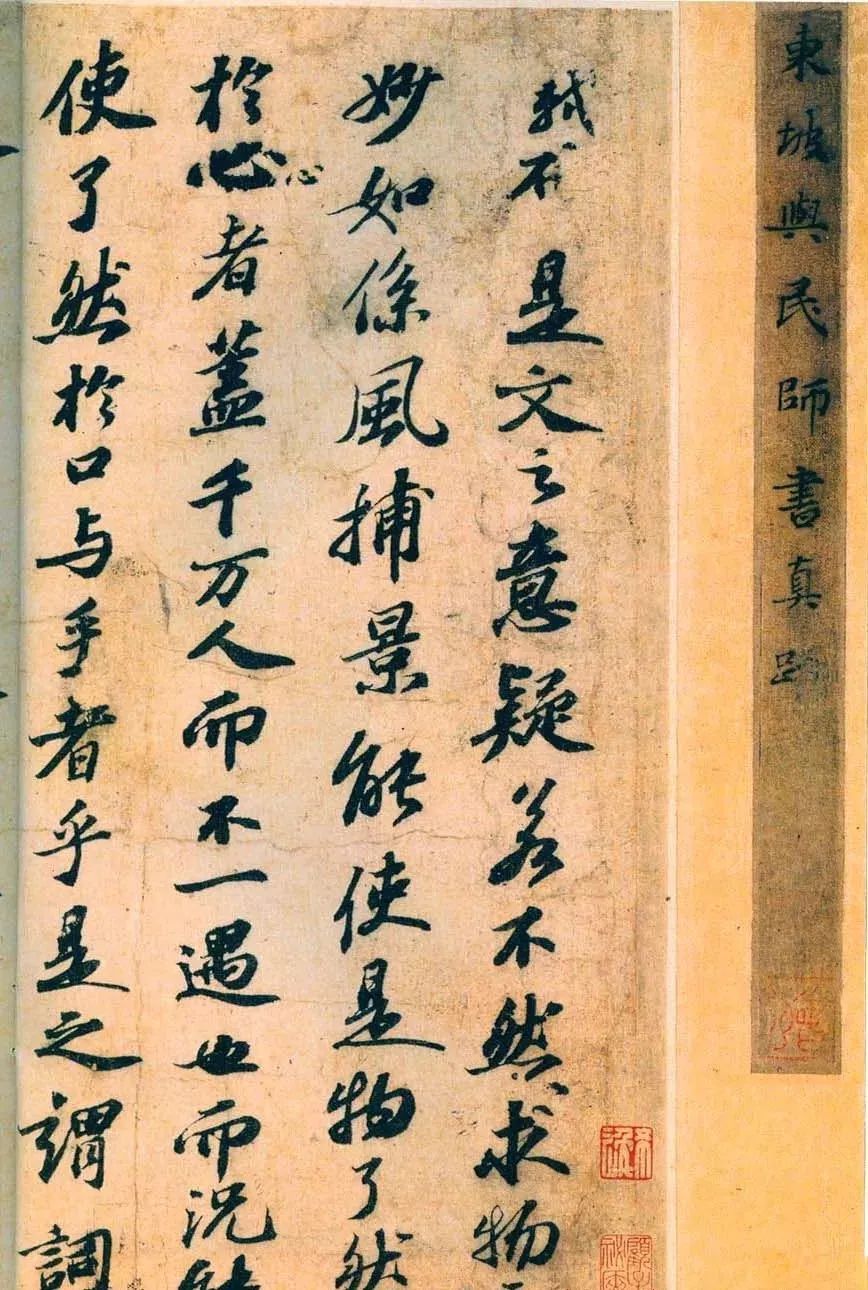 東坡與民師書真跡
軾不
是文之意疑若不然求物
妙如係風捕景能使是物了然
於心心者蓋千万人而不一遇也而況能
使了然於口与手者乎是之謂詞